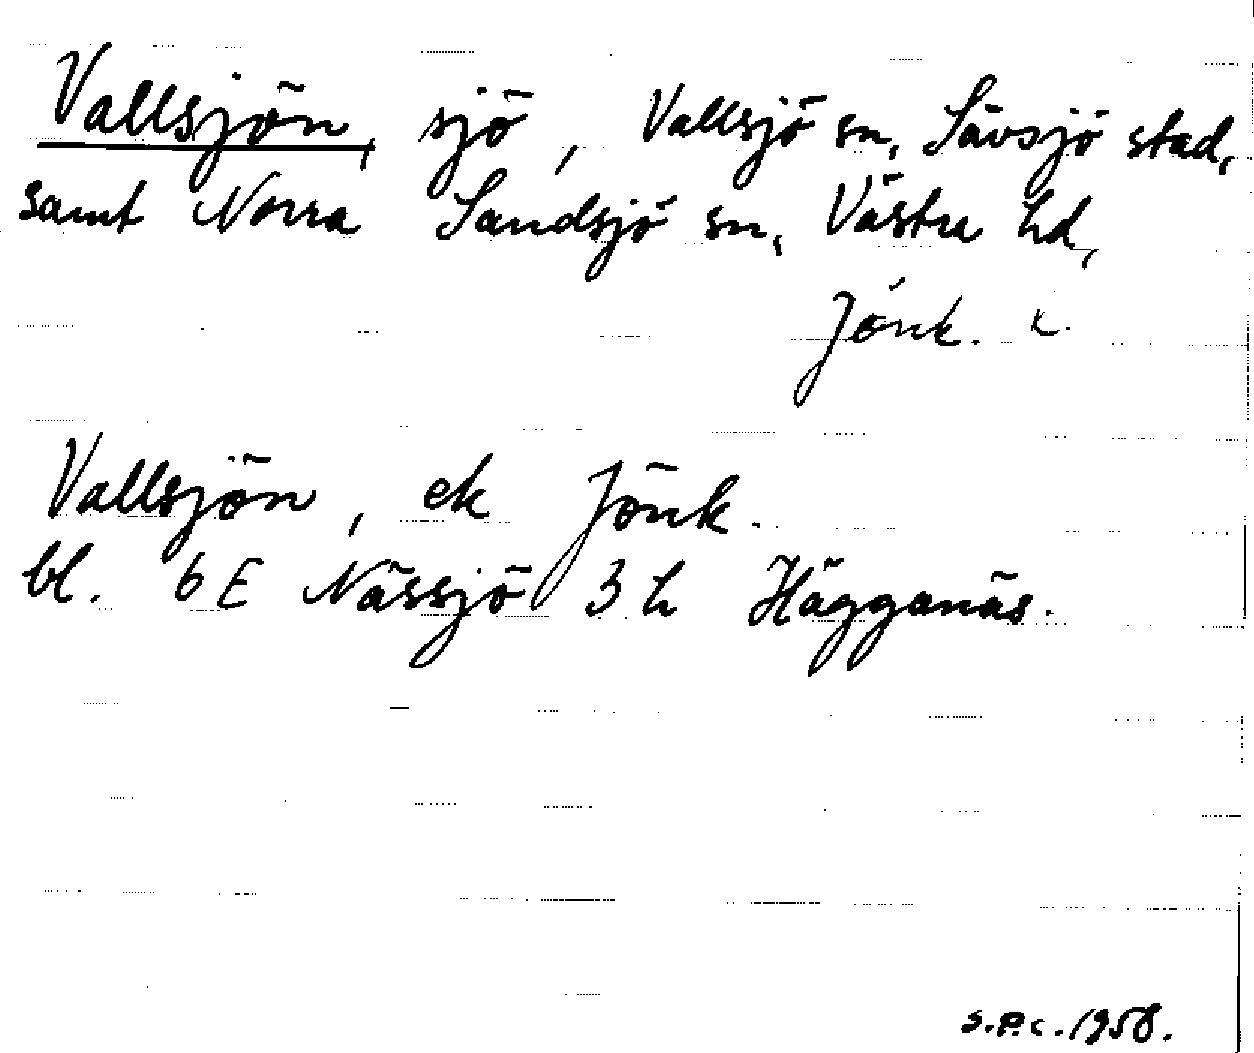 Vallsjön, sjö, Vallsjö sn, Sävsjö stad,
samt Norra Sandsjö sn, Västra hd,
Jönk. L.
Vallsjön, ek Jönk.
bl. 6E Nässjö 3h Hägganäs.
s.p.c. 1958.